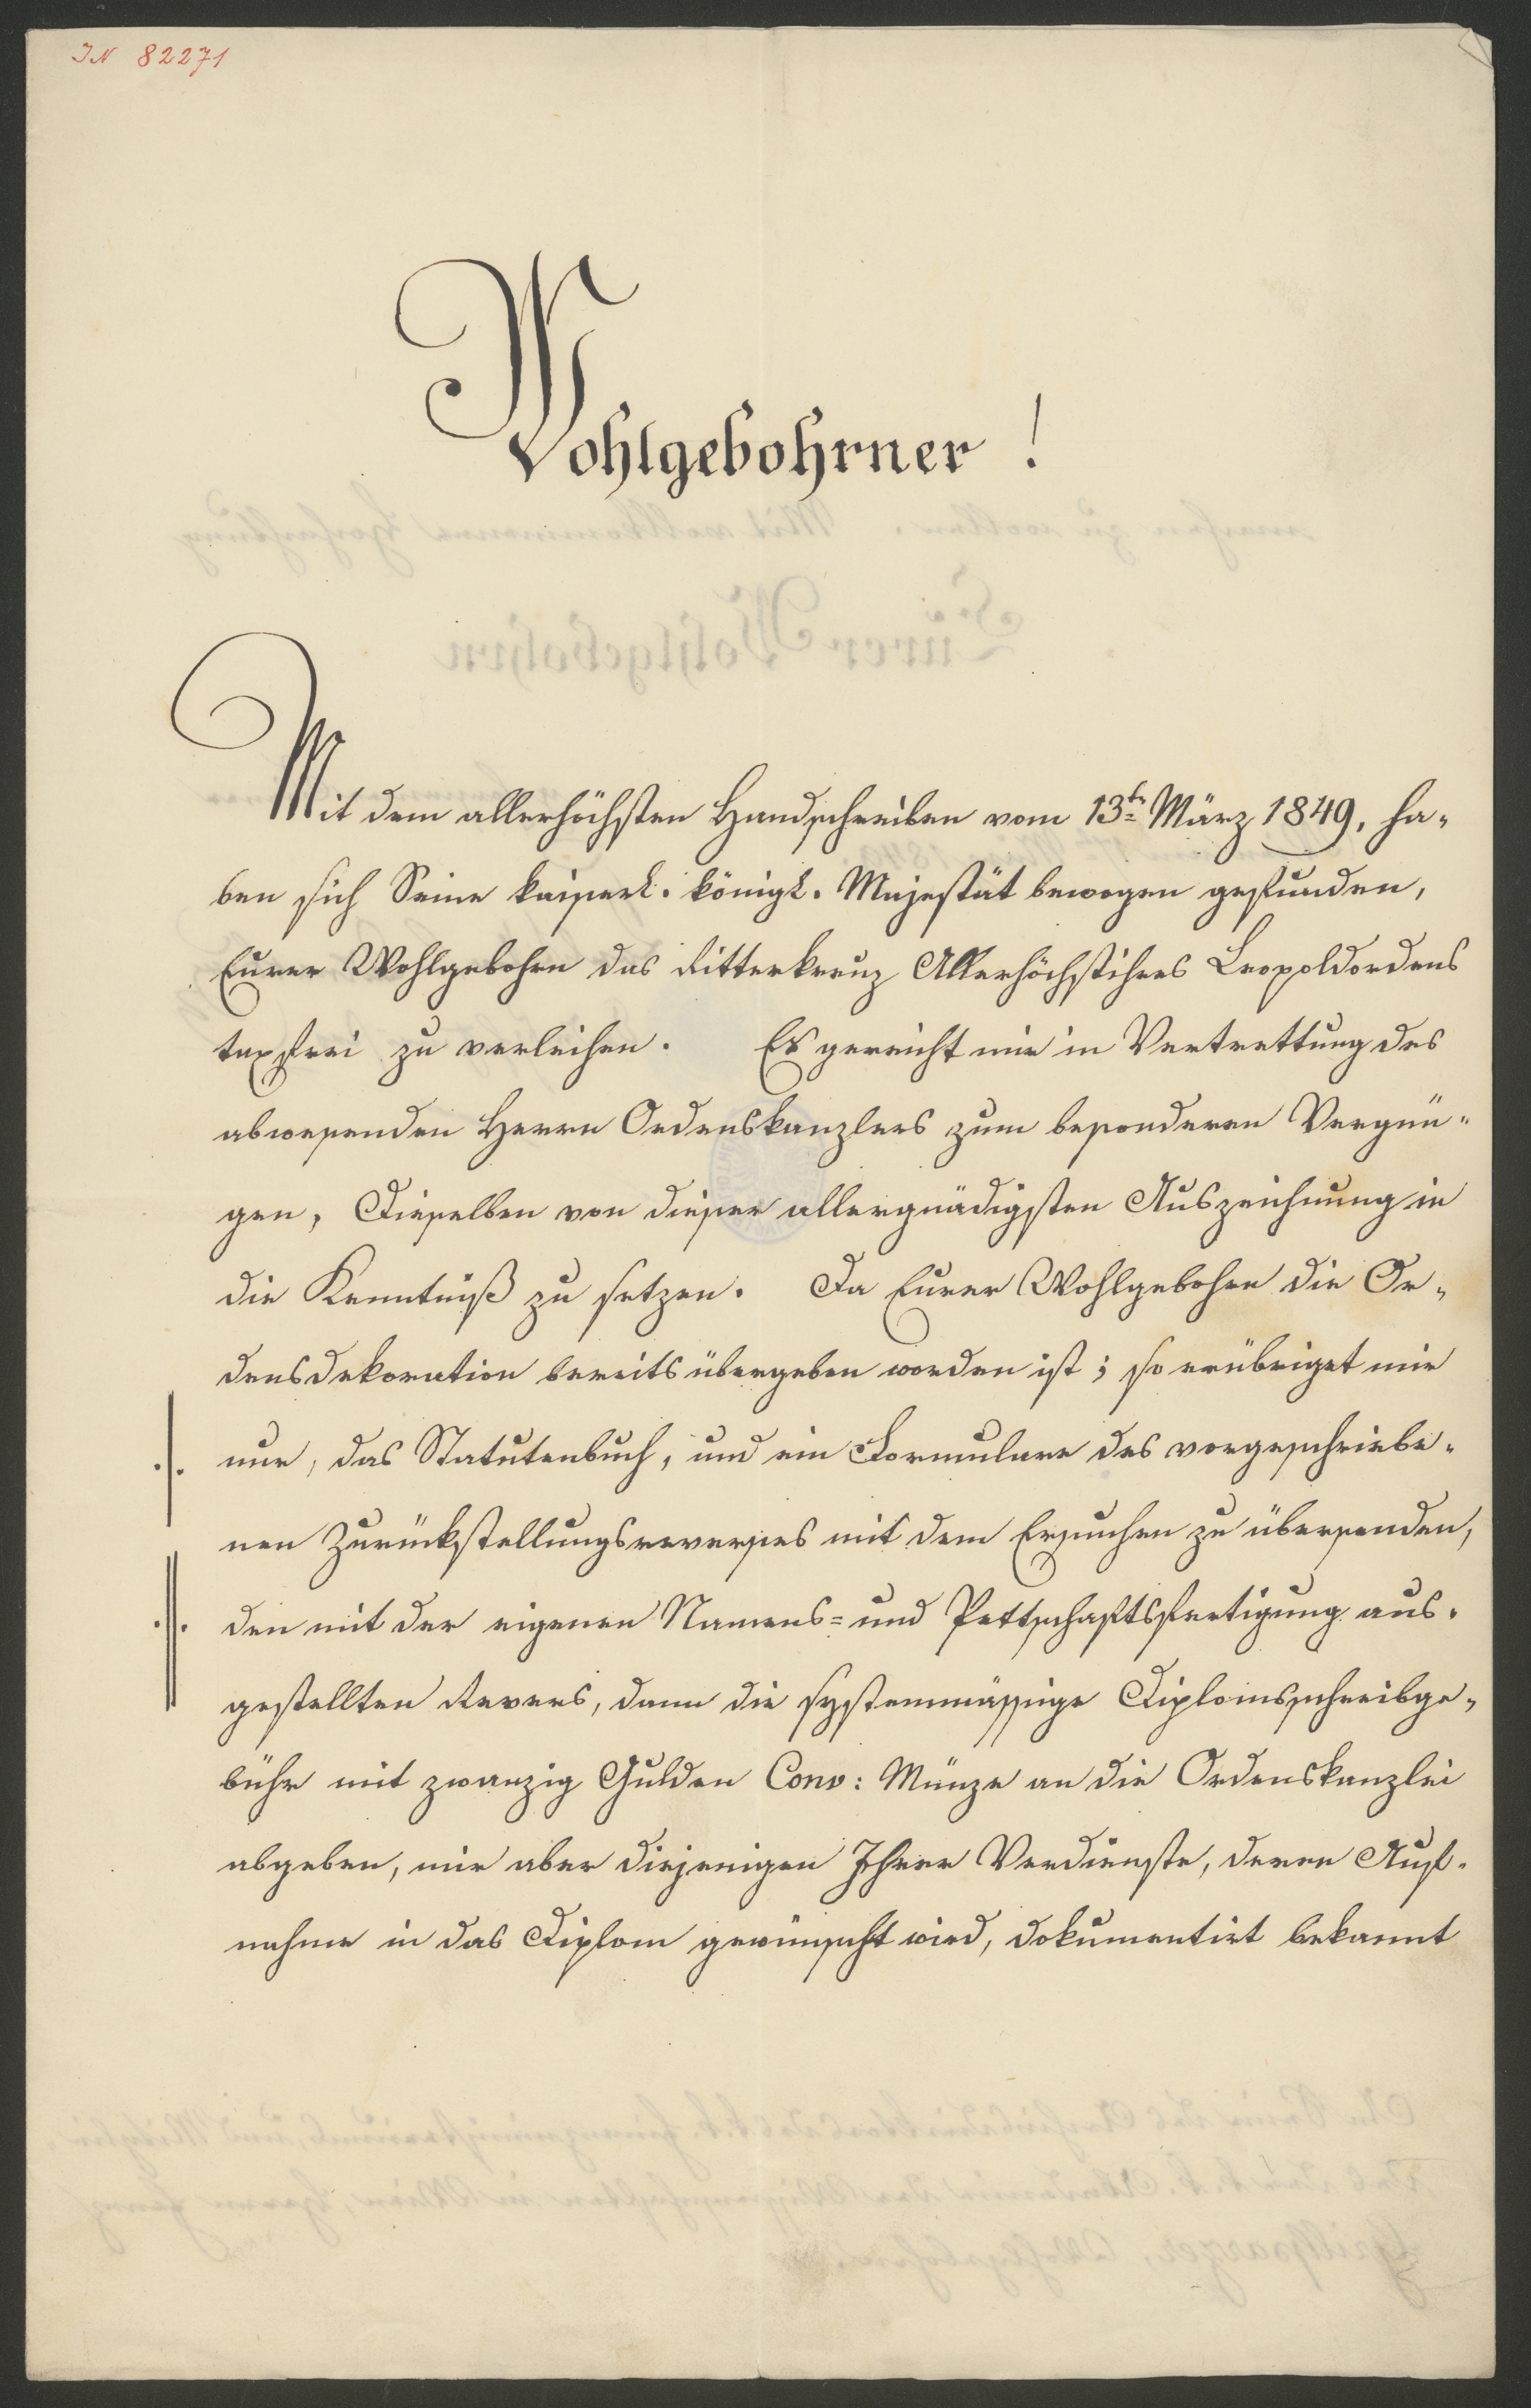 IN 82271
Wohlgebohrner !
Mit dem allerhöchsten Handschreiben vom 13ten März 1849, ha-
ben sich Seine kaiserl. königl. Majestät bewogen gefunden,
Eurer Wohlgebohrn das Ritterkreuz Allerhöchstihres Leopoldordens
taxfrei zu verleihen. Es gereicht mir in Vertrettung des
abwesenden Herrn Ordenskanzlers zum besonderen Vergnü-
gen, Dieselben von dieser allergnädigsten Auszeichnung in
die Kenntniß zu setzen. Da Eurer Wohlgebohrn die Or-
densdekoration bereits übergeben worden ist; so erübriget mir
nur, das Statutenbuch, und ein Formulare des vorgeschriebe-
nen Zurückstellungsreverses mit dem Ersuchen zu übersenden,
den mit der eigenen Namens= und Pettschaftsfertigung aus-
gestellten Revers, dann die systemmässige Diplomsschreibge-
bühr mit zwanzig Gulden Conv: Münze an die Ordenskanzlei
abgeben, mir aber diejenigen Ihrer Verdienste, deren Auf-
nahme in das Diplom gewünscht wird, dokumentirt bekannt